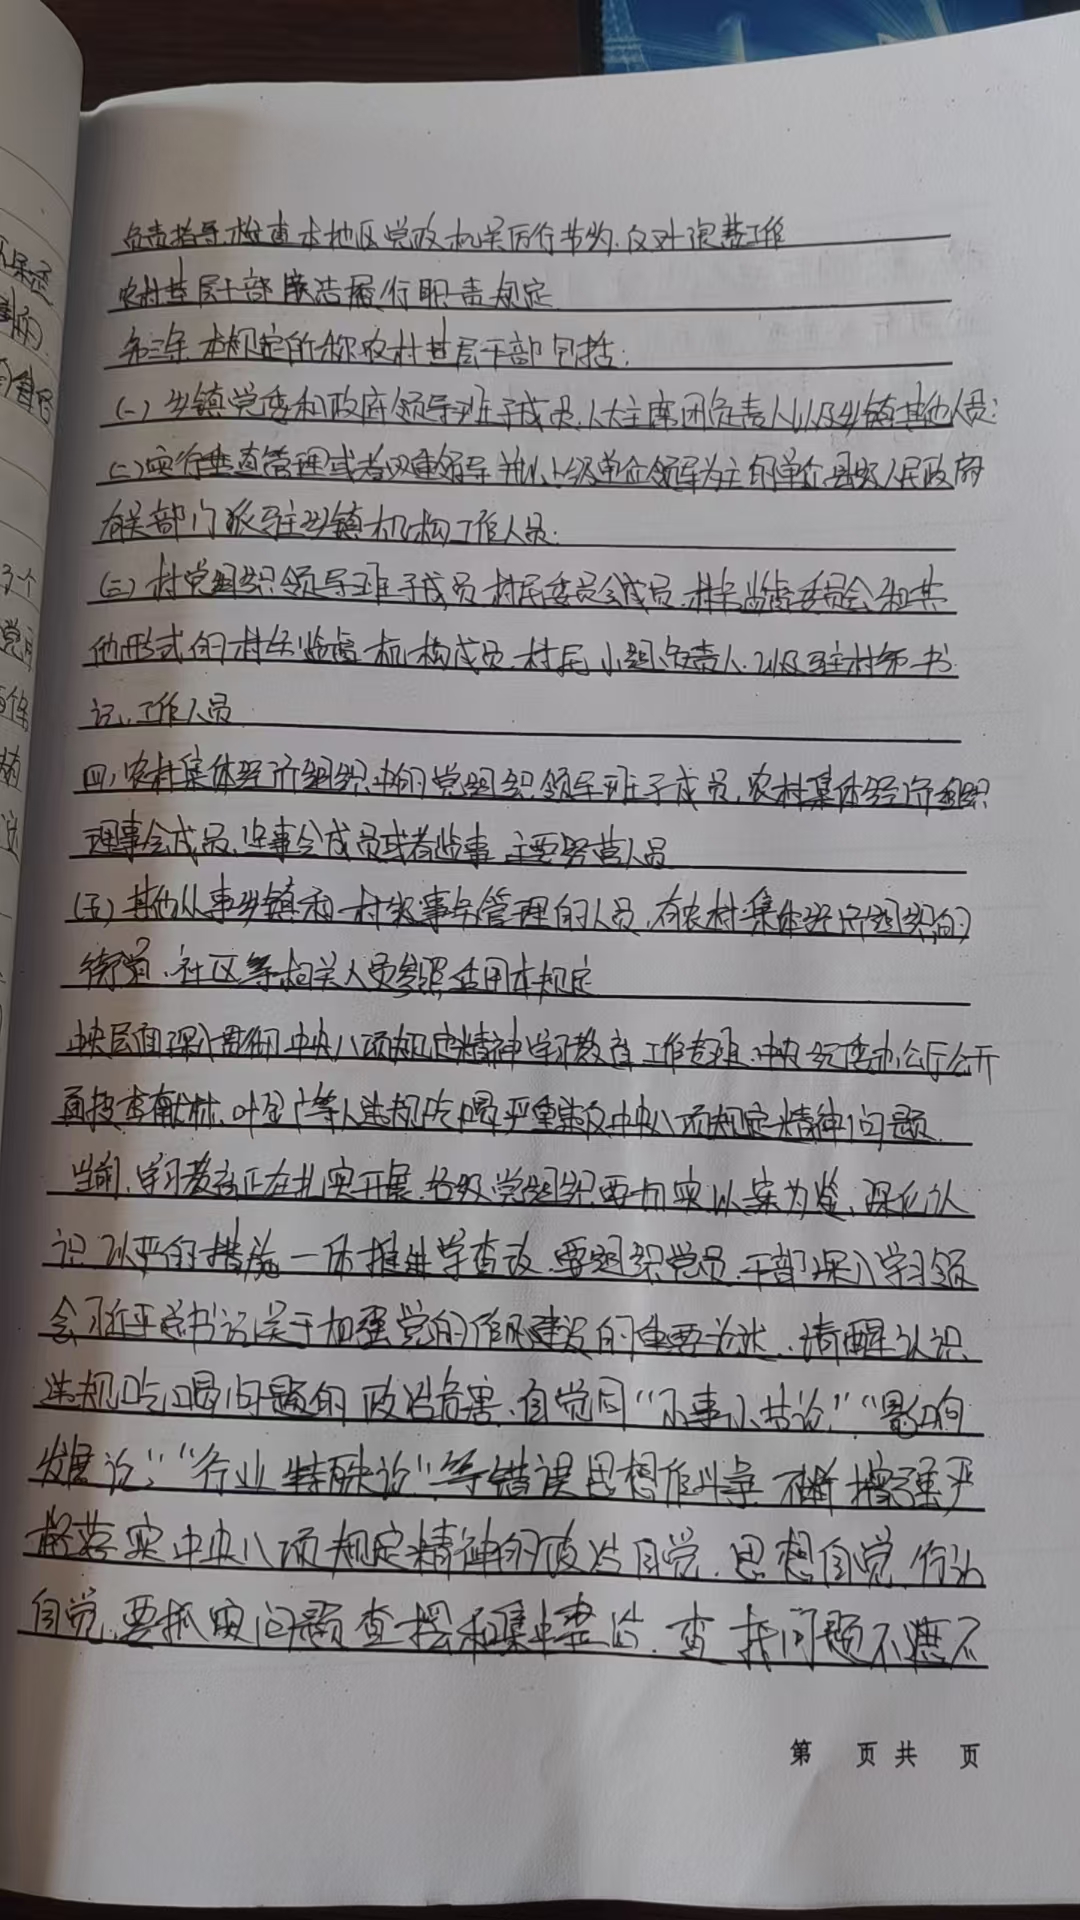 负责指导、检查本地区党政机关厉行节约、反对浪费工作
农村基层干部廉洁履行职责规定
第三条 本规定所称农村基层干部包括:
(一)乡镇党委和政府领导班子成员、人大主席团负责人以及乡镇其他人员;
(二)实行垂直管理或者双重领导并以上级单位领导为主的单位、县级人民政府
有关部门派驻乡镇机构工作人员;
(三)村党组织领导班子成员、村民委员会成员、村务监督委员会和其
他形式的村务监督机构成员、村民小组负责人、以及驻村第一书
记、工作人员
四、农村集体经济组织中的党组织领导班子成员、农村集体经济组织
理事会成员、监事会成员或者监事、主要经营人员
(五)其他从事乡镇和村级事务管理的人员、有农村集体经济组织的
街道、社区等相关人员参照适用本规定
中央层面深入贯彻中央八项规定精神学习教育工作专班、中央纪委办公厅公开
通报李献林、叶金广等人违规吃喝严重违反中央八项规定精神问题
当前、学习教育正在扎实开展、各级党组织要切实以案为鉴、深化认
识 以严的措施 一体推进学查改、要组织党员、干部深入学习领
会习近平总书记关于加强党的作风建设的重要论述、清醒认识
违规吃喝问题的政治危害、自觉同“小事小节论”“影响
发展论”、“行业特殊论”等错误思想作斗争 不断增强严
格落实中央八项规定精神的政治自觉、思想自觉、行动
自觉、要抓实问题查摆和集中整治、查找问题不遮不
第 页 共 页